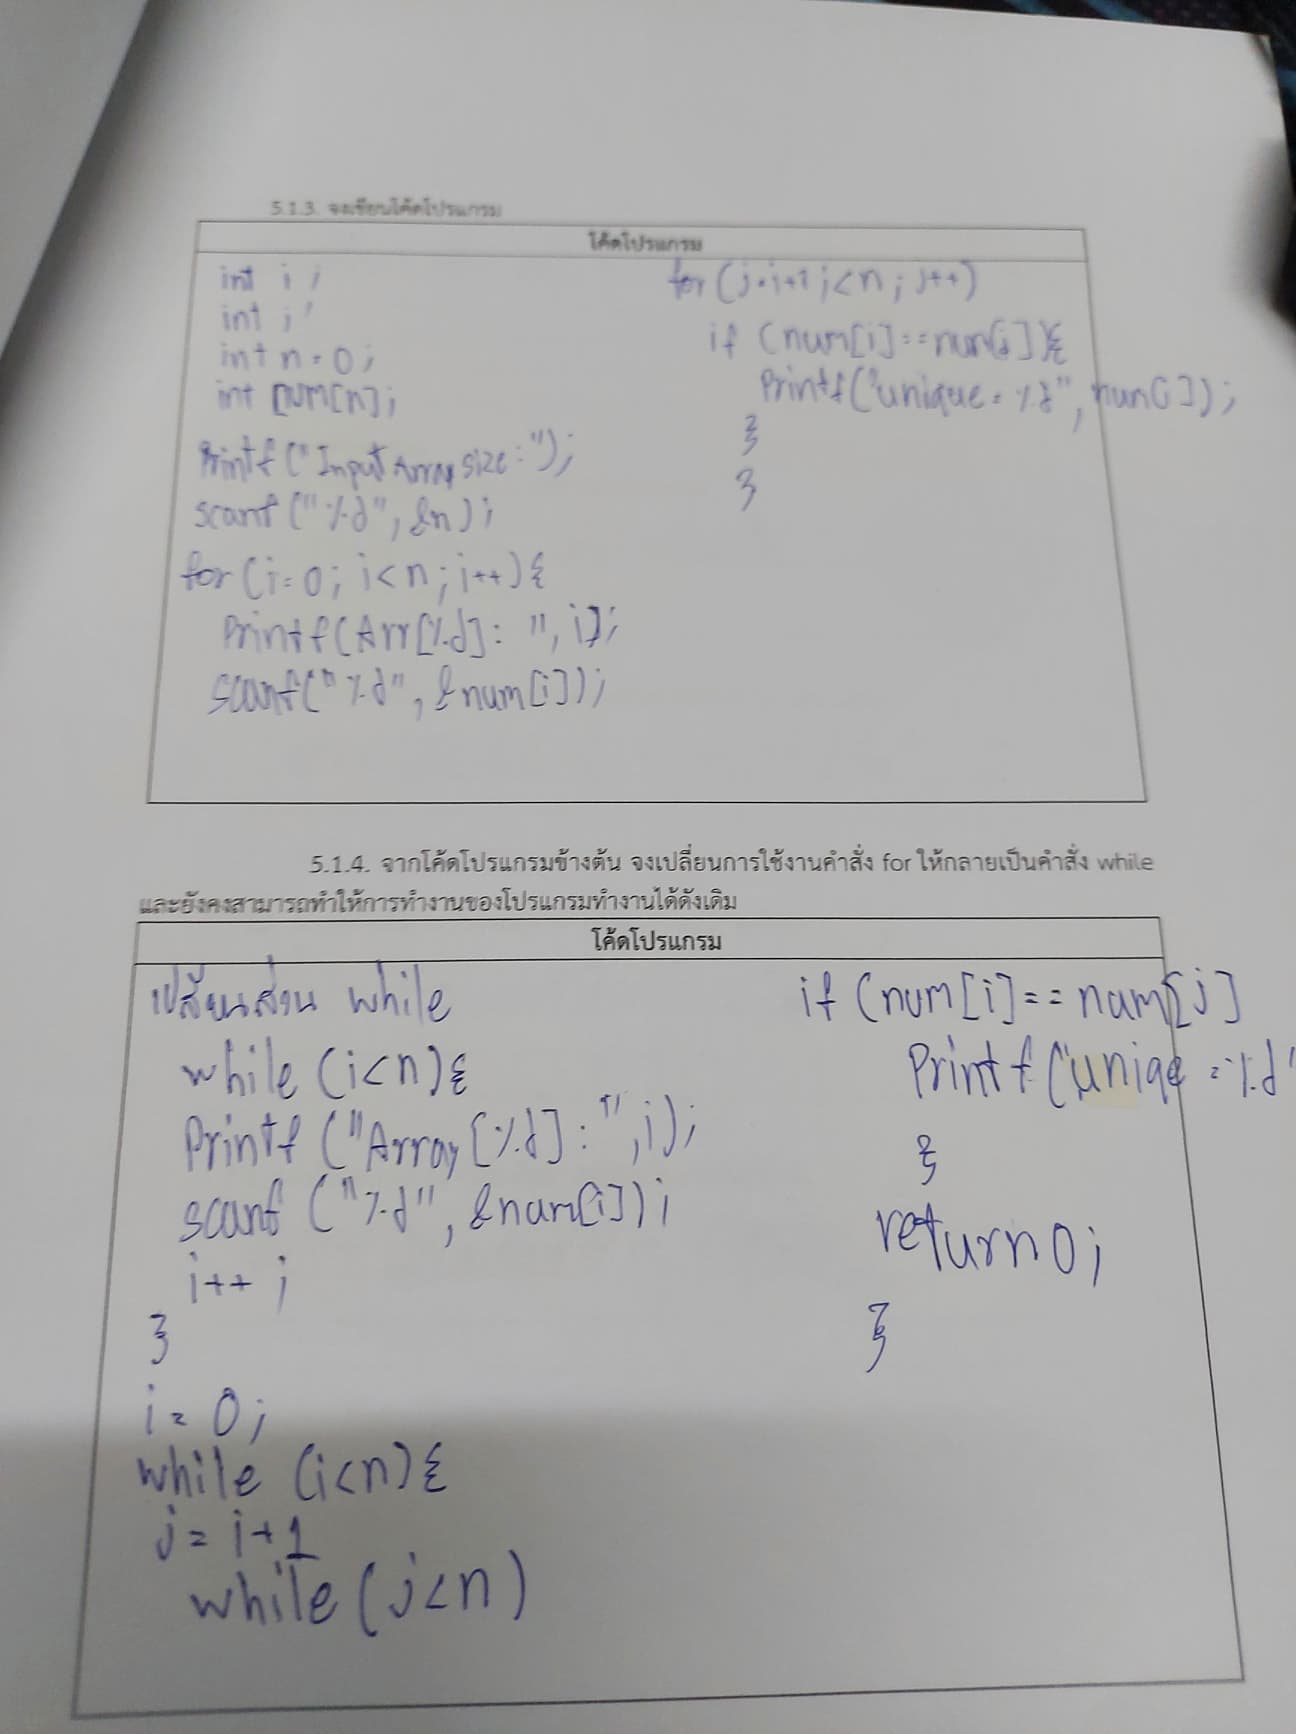 5.1.3. จงเขียนโค้ดโปรแกรม
โค้ดโปรแกรม
int i ;
int j ;
int n = 0 ;
int num[n];
Printf ("Input Array size : ");
scanf ("%d", &n) ;
for (i = 0 ; i < n ; i++) {
Printf(Arr[%d] : ", i];
scanf("%d", &num[i]);
for (j=i+1 ; j<n ; j++)
if (num[i]==num[j]){
Printf("unique = %d", num[i]);
}
}
5.1.4. จากโค้ดโปรแกรมข้างต้น จงเปลี่ยนการใช้งานคำสั่ง for ให้กลายเป็นคำสั่ง while
และยังคงสามารถทำให้การทำงานของโปรแกรมทำงานได้ดังเดิม
โค้ดโปรแกรม
เปลี่ยนส่วน while
while (i<n){
Printf ("Array [%d] : ", i);
scanf ("%d", &num[i]);
i++ ;
}
i = 0 ;
while (i<n){
j = i+1
while (j<n)
if (num[i]== num[j]
Printf ("uniqe = %d"
}
return 0 ;
}